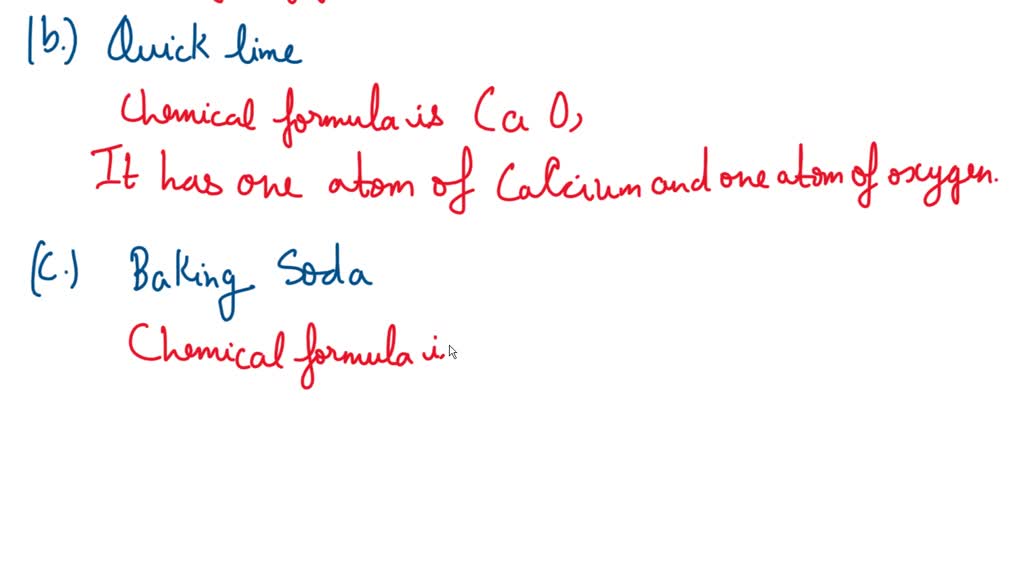 (b.) Quick lime
Chemical formula is CaO,
It has one atom of Calcium and one atom of oxygen.
(C.) Baking Soda
Chemical formula i.